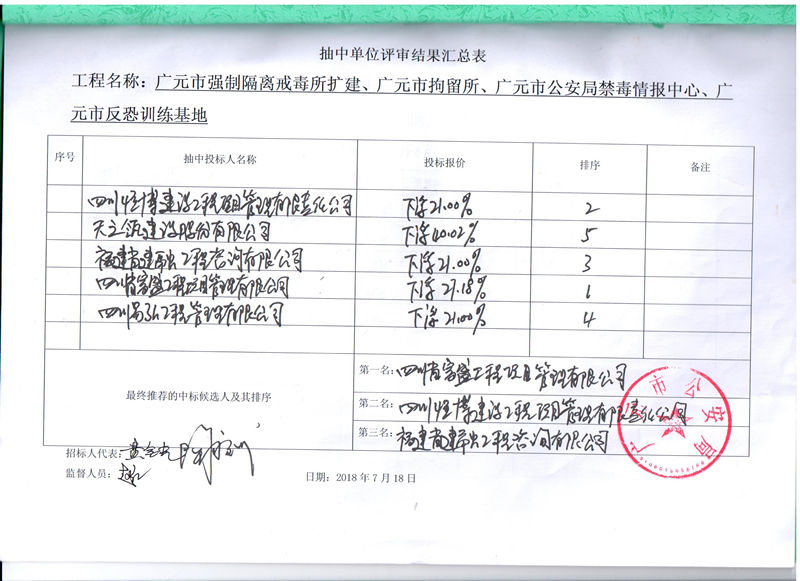 抽中单位评审结果汇总表
工程名称：广元市强制隔离戒毒所扩建、广元市拘留所、广元市公安局禁毒情报中心、广
元市反恐训练基地
序号 抽中投标人名称 投标报价 排序 备注
四川恒博建设工程项目管理有限责任公司 下浮21.00% 2
建设股份有限公司 下浮40.02% 5
福建省建 工程咨询有限公司 下浮21.00% 3
四川省富盛工程项目管理有限公司 下浮21.18% 1
四川 工程管理有限公司 下浮21.00% 4
最终推荐的中标候选人及其排序
第一名：四川省富盛工程项目管理有限公司
第二名：四川恒博建设工程项目管理有限责任公司
第三名：福建省建 工程咨询有限公司
广 市公安局
招标人代表：
监督人员：
日期：2018年7月18日